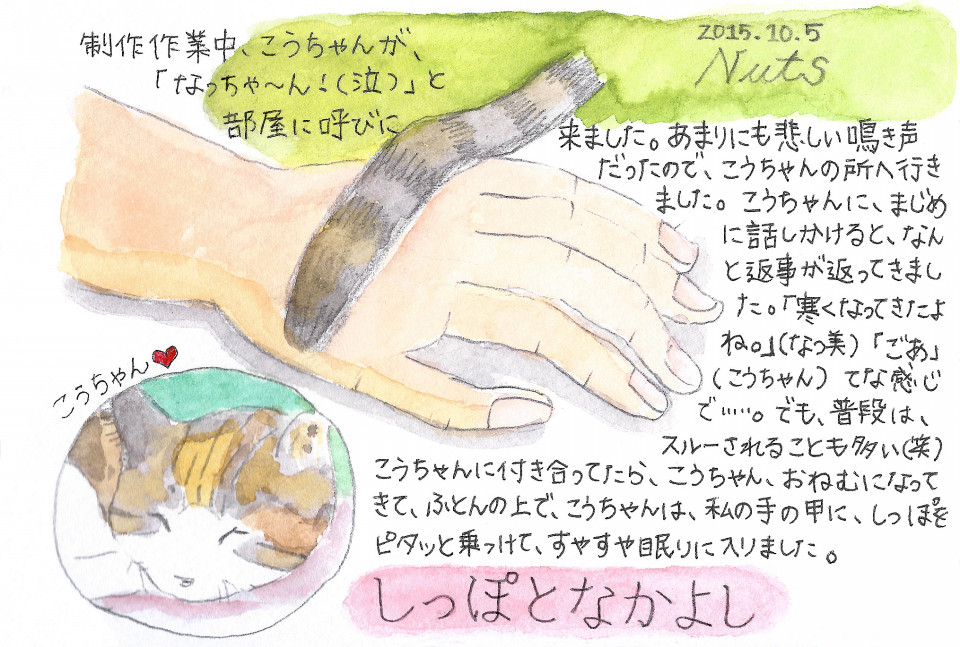 2015.10.5
Nuts
制作作業中、こうちゃんが、
「なっちゃ〜ん！（泣）」と
部屋に呼びに
来ました。あまりにも悲しい鳴き声
だったので、こうちゃんの所へ行き
ました。こうちゃんに、まじめ
に話しかけると、なん
と返事が返ってきまし
た。「寒くなってきたよ
ね。」（なつ美）「ごあ」
（こうちゃん）てな感じ
で……。でも、普段は、
スルーされることも多い（笑）
こうちゃんに付き合ってたら、こうちゃん、おねむになって
きて、ふとんの上で、こうちゃんは、私の手の甲に、しっぽを
ピタッと乗っけて、すやすや眠りに入りました。
こうちゃん♥
しっぽとなかよし